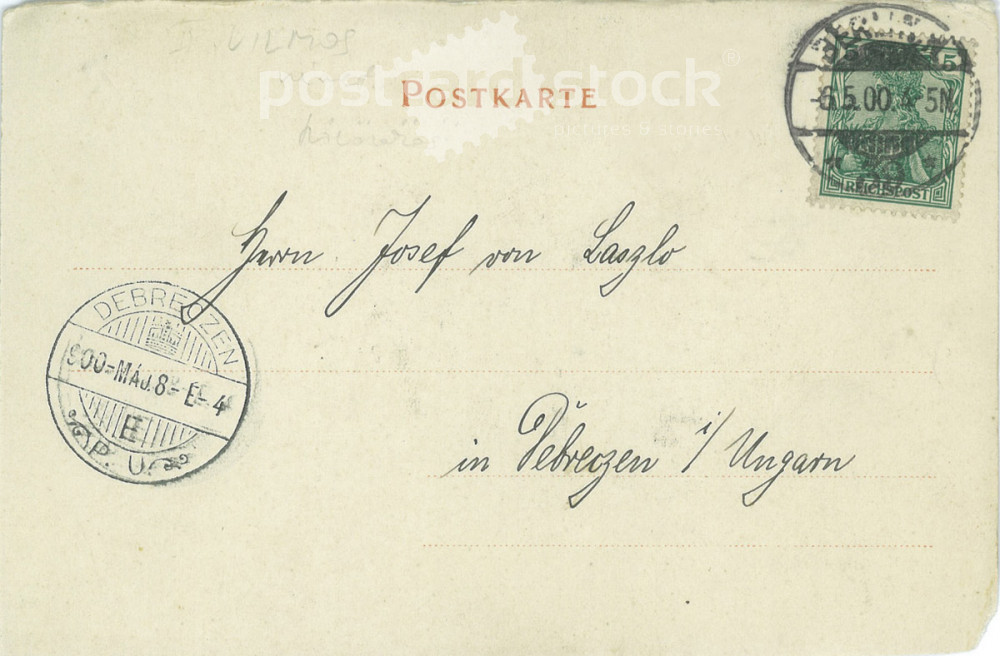 II. VILMOS
postcardstock
pictures & stories
POSTKARTE
5 5
-6.5.00. 4-5N.
REICHSPOST
Herrn Josef von Laszlo
DEBRECZEN
900-MÁJ.8-E-4
E
P. U.
in Debreczen i/Ungarn